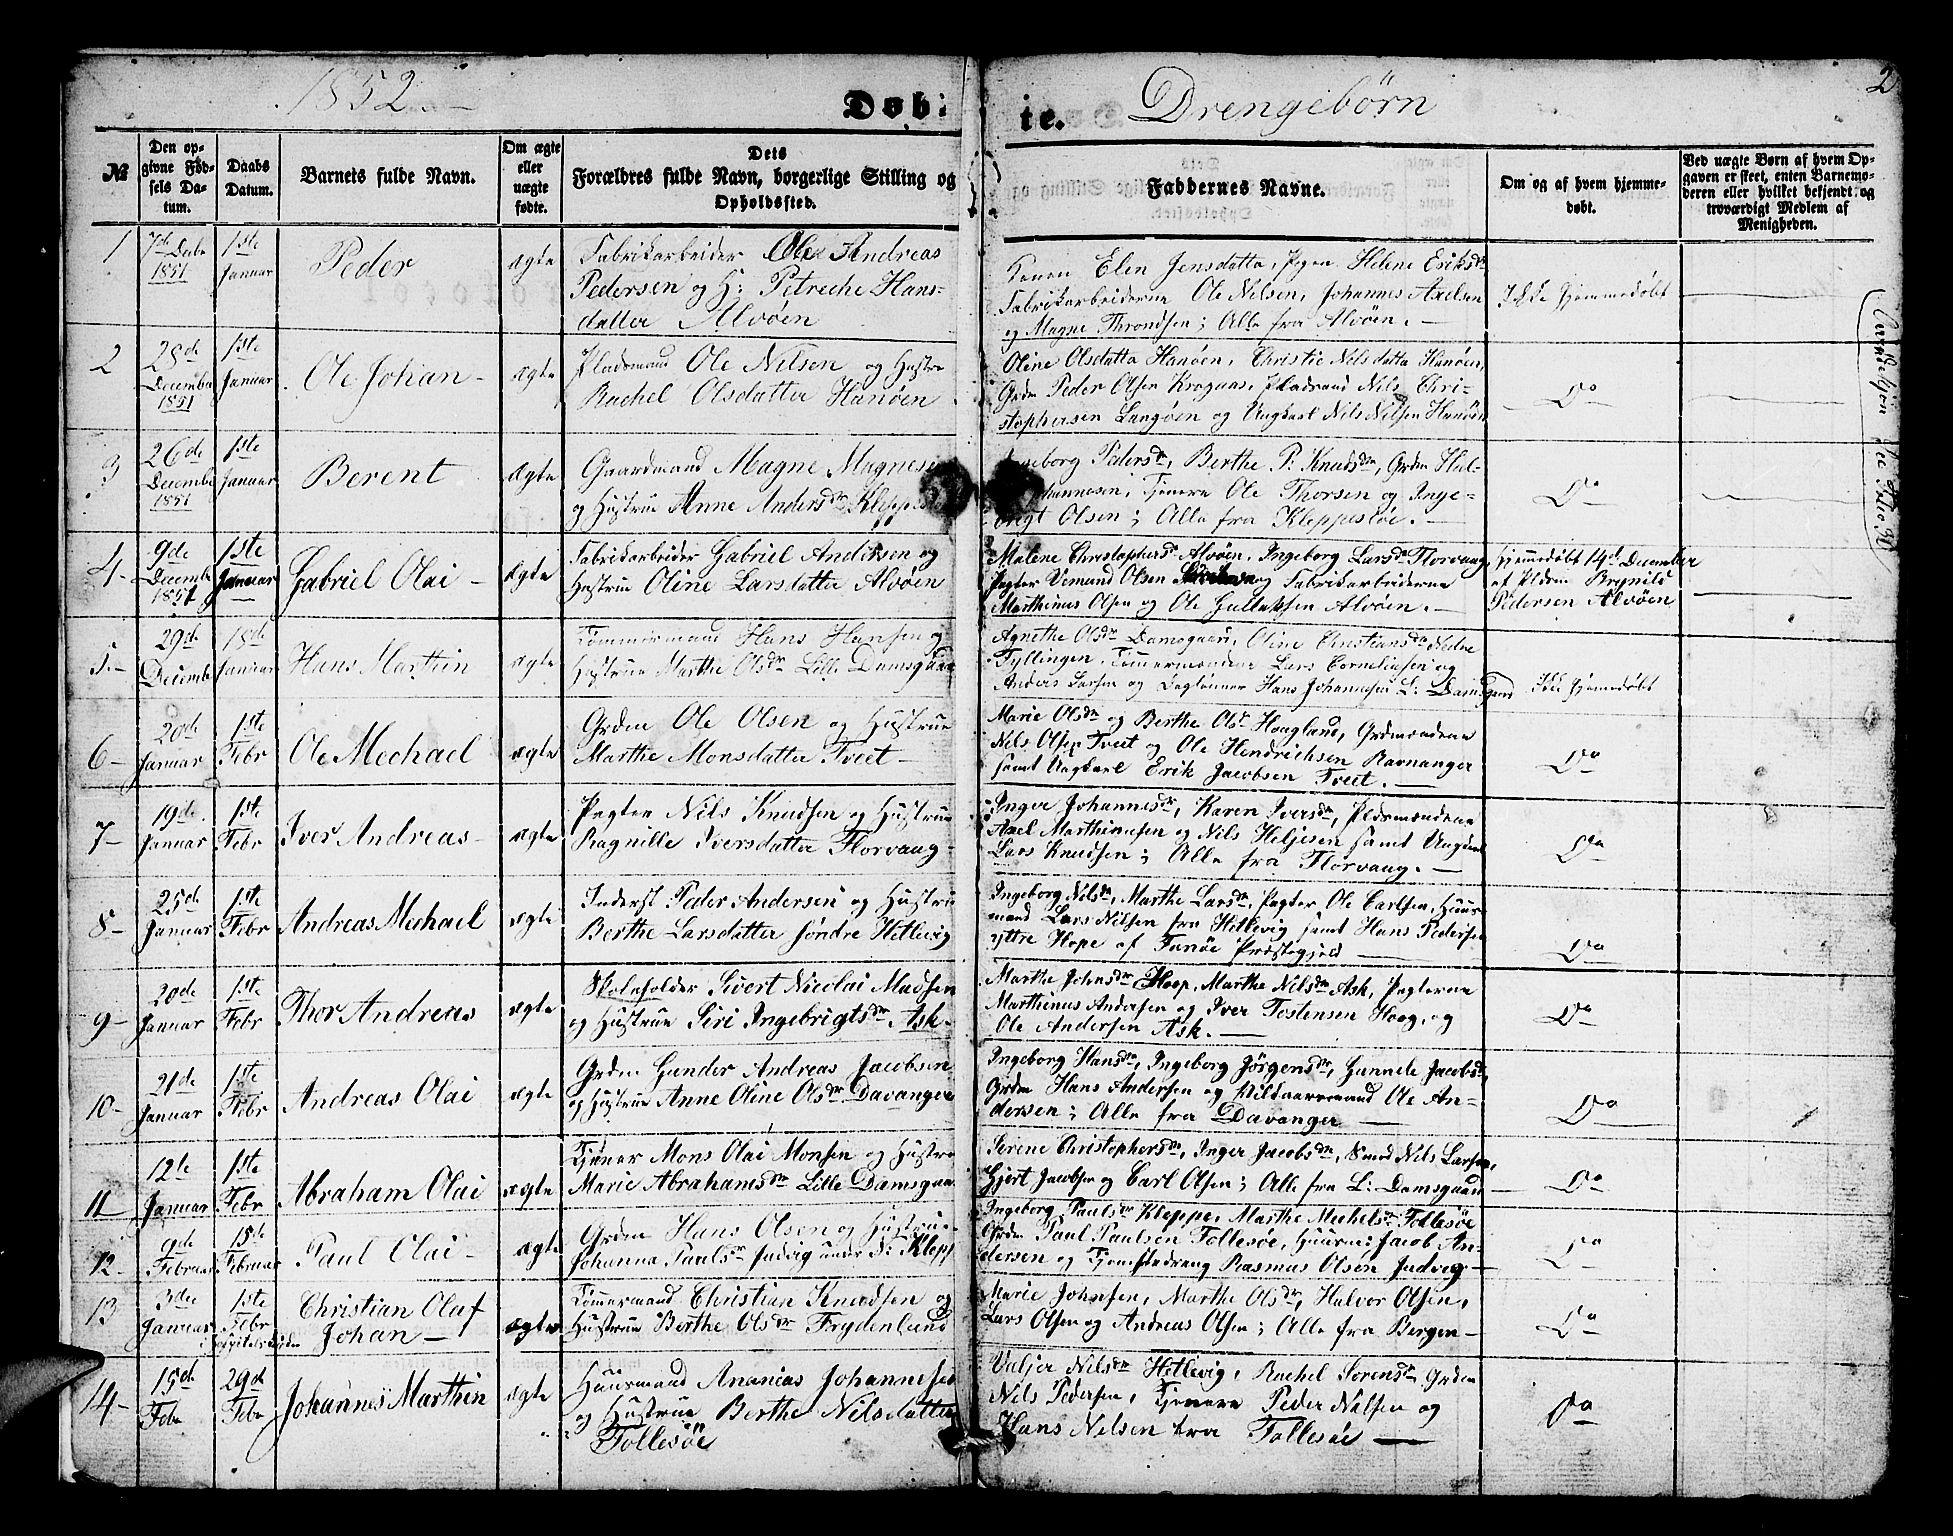 1852
Døbte.
Drengebørn
2
№
Den opgivne Fødsels Datum.
Daabs Datum.
Barnets fulde Navn.
Om ægte eller uægte fødte.
Dets Forældres fulde Navn, borgerlige Stilling og Opholdssted.
Faddernes Navne.
Om og af hvem hjemmedøbt.
Ved uægte Børn af hvem Opgaven er skeet, enten Barnemoderen eller hvilket bekjendt og troværdigt Medlem af Menigheden.
1
7de Decbr 1851
1ste Januar
Peder
ægte
Fabrikarbeider Ole Andreas
Pedersen og H: Petreche Hans-
datter Alvøen
Konen Elen Jensdatter, Pigen Helene Eriksdr
Fabrikarbeiderne Ole Nilsen, Johannes Axelsen
og Magne Throndsen; Alle fra Alvøen.
Ikke hjemmedøbt
2
28de December 1851
1ste Januar
Ole Johan
ægte
Pladsmand Ole Nilsen og Hustru
Rachel Olsdatter Hanøen
Oline Olsdatter Hanøen, Christie Nilsdatter Hanøen,
Grdm Peder Olsen Krogaas, Pladsmand Nils Chri-
stophersen Langøen og Ungkarl Nils Nilsen Hanøen
Do
3
26de December 1851
1ste Januar
Berent
ægte
Gaardmand Magne Magnesen
og Hustrue Anne Andersdr Kleppesøe
Ingeborg Pedersdr, Berthe P: Knudsdr, Grdm Hal-
Johannesen, Tjenere Ole Thorsen og Inge-
brigt Olsen; Alle fra Kleppesøe.
Do
4
9de December 1851
1ste Januar
Gabriel Olai
ægte
Fabrikarbeider Gabriel Andersen og
Hustrue Oline Larsdatter Alvøen
Malene Christophersdr Alvøen, Ingeborg Larsdr Florvaag,
Pagter Vemund Olsen og Fabrikarbeiderne
Marthinus Olsen og Ole Gullaksen Alvøen.
Hjemmedøbt 14de December
af Pldsm Brynild
Pedersen Alvøen
5
29de December
18de Januar
Hans Marthin
ægte
Tømmermand Hans Hansen og
Hustrue Marthe Olsdr Lille Damsgaard
Agnethe Olsdr Damsgaard, Oline Christiansdr Nedre
Fyllingen, Tømmermændene Lars Corneliusen og
Anders Larsen og Daglønner Hans Johannesen L: Damsgaard
Ikke hjemmedøbt
6
20de Januar
1ste Febr
Ole Mechael
ægte
Grdm Ole Olsen og Hustrue
Marthe Monsdatter Tveit
Marie Olsdr og Berthe Olsdr Haugland, Grdmændene
Nils Olsen Tveit og Ole Hendrichsen Ravnanger
samt Ungkarl Erik Jacobsen Tveit.
Do
7
19de Januar
1ste Febr
Iver Andreas
ægte
Pagter Nils Knudsen og Hustrue
Ragnille Iversdatter Florvaag
Inger Johannesdr, Karen Iversdr, Pldsmændene
Axel Marthinusen og Nils Heljesen samt Ungkarl
Lars Knudsen; Alle fra Florvaag.
Do
8
25de Januar
1ste Febr
Andreas Mechael
ægte
Inderst Peder Andersen og Hustru
Berthe Larsdatter søndre Hetlevig
Ingeborg Nilsdr, Marthe Larsdr, Pagter Ole Carlsen, Huus-
mand Lars Nilsen fra Hetlevig samt Hans Pedersen
yttre Hope af Fanøe Præstegjeld
Do
9
20de Januar
1ste Febr
Thor Andreas
ægte
Skoleholder Sivert Nicolai Madsen
og Hustrue Siri Ingebrigtsdr Ask.
Marthe Johnsdr Hoop, Marthe Nilsdr Ask, Pagterne
Marthinus Andersen og Iver Tostensen Hoog, og
Ole Andersen Ask.
Do
10
21de Januar
1ste Febr
Andreas Olai
ægte
Grdm Gunder Andreas Jacobsen
og Hustrue Anne Oline Olsdr Davanger
Ingeborg Hansdr, Ingeborg Jørgensdr, Gunnele Jacobsdr,
Grdm Hans Andersen og Ole An-
dersen; Alle fra Davanger
Do
11
12te Januar
1ste Febr
Abraham Olai
ægte
Tjener Mons Olai Monsen og Hustru
Marie Abrahamsdr Lille Damsgaard
Serene Christophersdr, Inger Jacobsdr, Smed Nils Larsen,
Gjert Jacobsen og Carl Olsen; Alle fra L: Damsgaard
Do
12
9de Februar
15de Februar
Paul Olai
ægte
Grdm Hans Olsen og Hustrue
Johanna Paulsdr Judvig under S: Klepp
Ingeborg Paulsdr Kleppe, Marthe Mechelsdr Follesøe
Grdm Paul Paulsen Follesøe, Huusm: Jacob An-
dersen og Tjenestedreng Rasmus Olsen Judvig
Do
13
3die Januar
1ste Febr
Christian Olaf
Johan
ægte
Tømmermand Christian Knudsen og
Hustrue Berthe Olsdr Frydenlund
Marie Johnsen, Marthe Olsdr, Halvor Olsen,
Lars Olsen og Andreas Olsen; Alle fra Bergen
Do
14
15de Febr
29de Febr
Johannes Marthin
ægte
Huusmand Ananias Johannesen
og Hustrue Berthe Nilsdatter
Follesøe
Valjer Nilsdr Hetlevig, Rachel Sørensdr, Grdm
Nils Pedersen, Tjenere Peder Nilsen og
Hans Nilsen fra Follesøe
Do